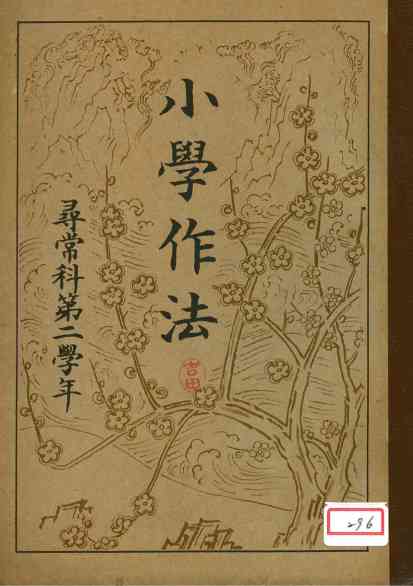 小學作法
尋常科第二學年
吉田
296